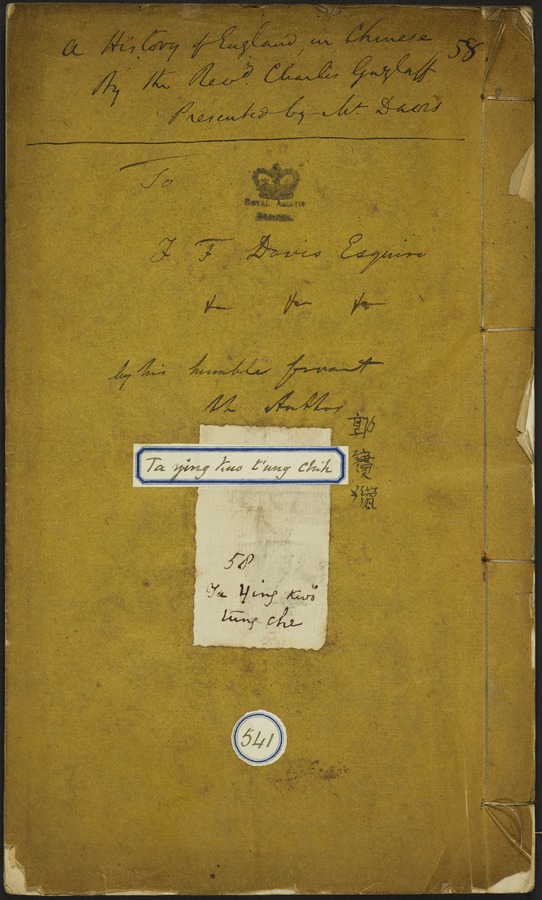 A History of England in Chinese 58
By the Revd. Charles Gutzlaff
Presented by Mr. Davis
To
ROYAL ASIATIC
SOCIETY.
J. F. Davis Esquire
by his humble servant
the Author
郭
實
獵
Ta ying kuo t'ung chih
58
Ta Ying kwŏ
tung che
541